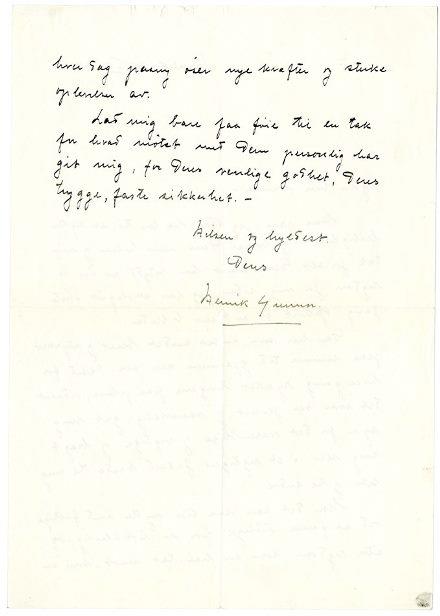 hver dag paany øser nye kræfter og sterke
oplevelser av.
Lad mig bare faa føie til en tak
for hvad møtet med Dem personlig har
git mig, for Deres venlige godhet, Deres
trygge, faste sikkerhet. –
Hilsen og hyldest.
Deres
Henrik